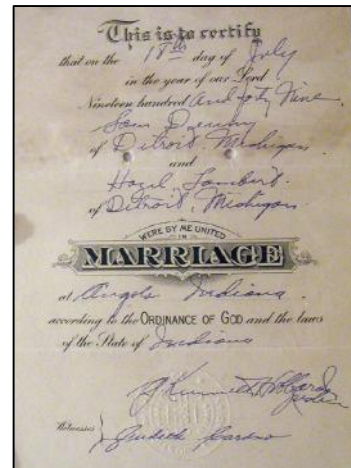 This is to certify
that on the 18th day of July
in the year of our Lord
Nineteen hundred and forty Nine
Sam Denny
of Detroit, Michigan
and
Hazel Lambert
of Detroit, Michigan
WERE BY ME UNITED
IN
MARRIAGE
at Angola Indiana
according to the ORDINANCE OF GOD and the laws
of the State of Indiana
Kenneth Hubbard
Witnesses
Judith